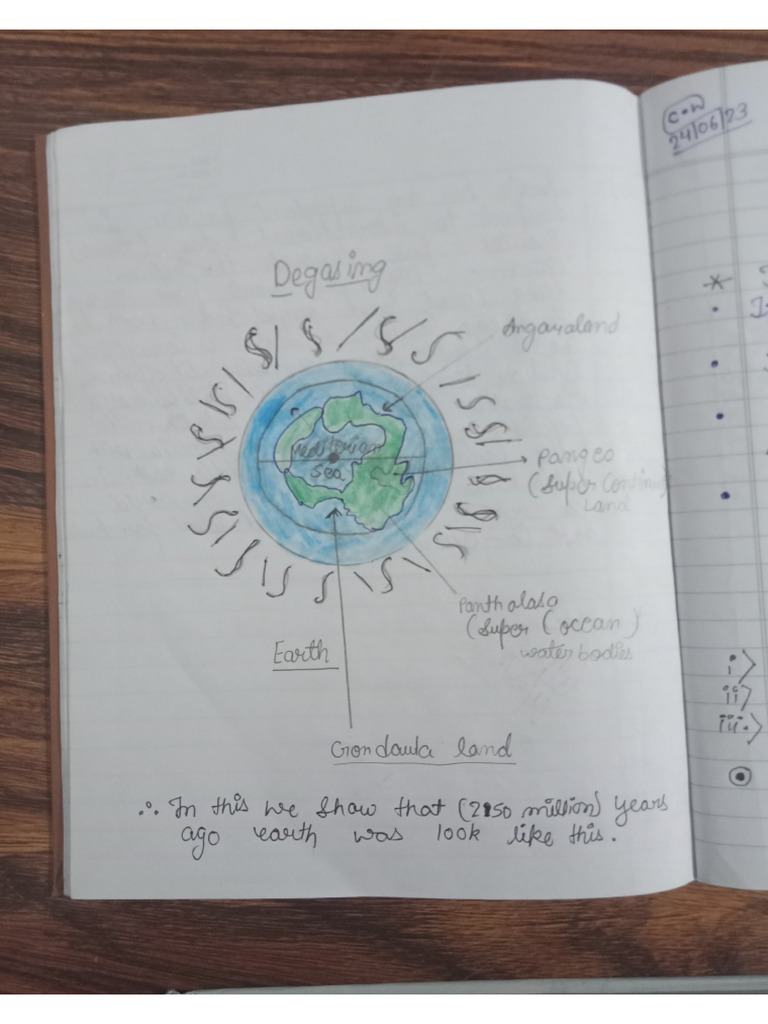 C.W
24/06/23
Degasing
Angaraland
Mediterian
Sea
Pangeo
(Super Continent
Land
Pantholasa
(Super (occan)
water bodies
Earth
Gondawla land
∴ In this we show that (250 million) years
ago earth was look like this.
i>
ii>
iii.>